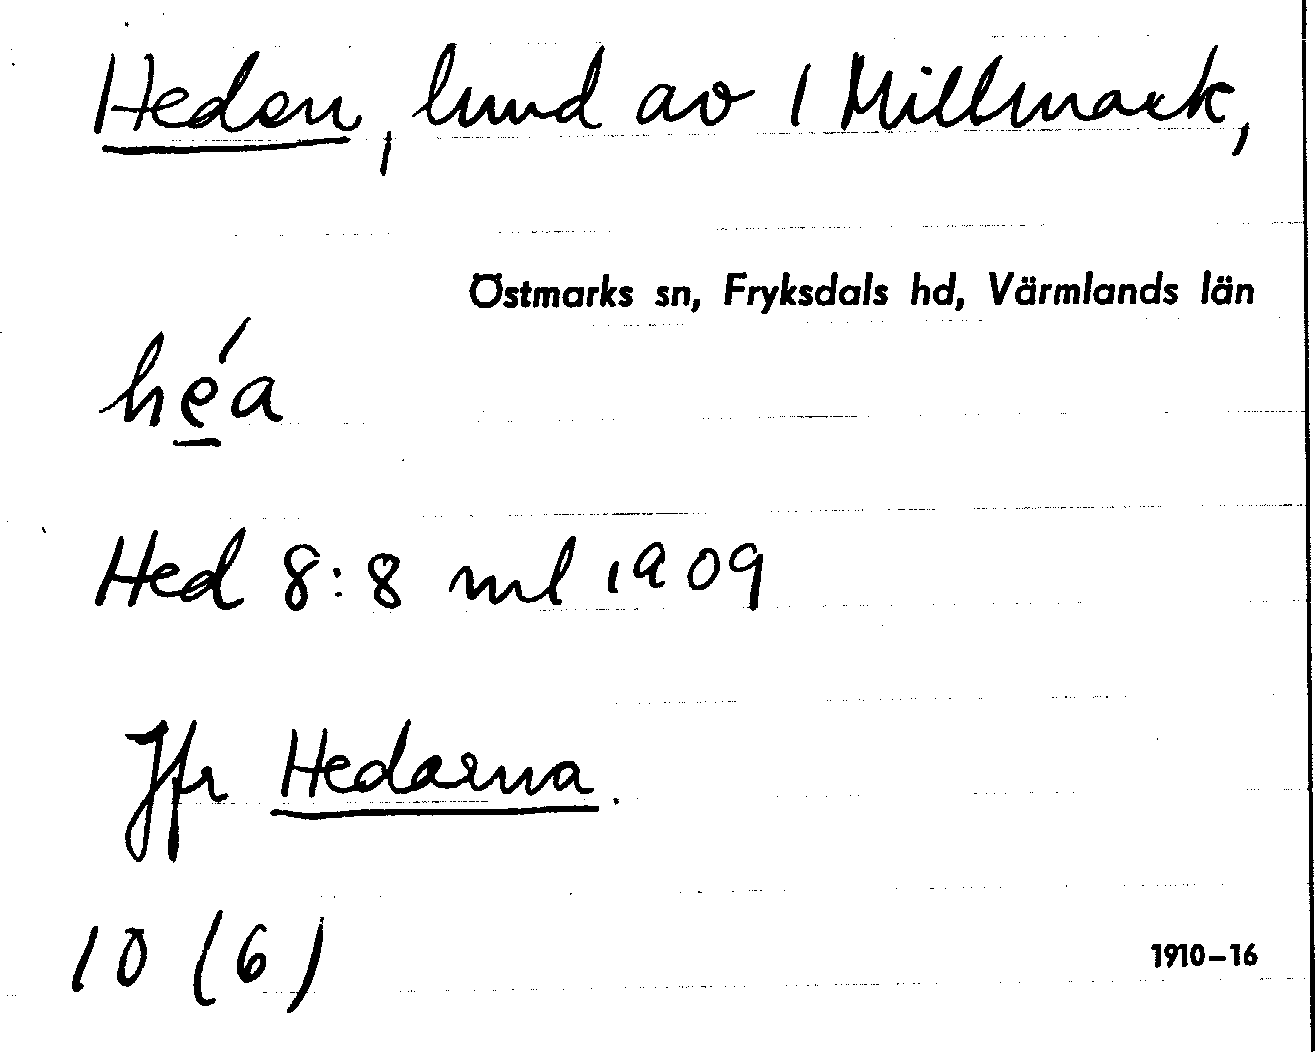 Heden, lund av 1 Millmark,
Östmarks sn, Fryksdals hd, Värmlands län
he̲´a
Hed 8:8 ml 1909
Jfr Hedarna.
10 (6)
1910–16